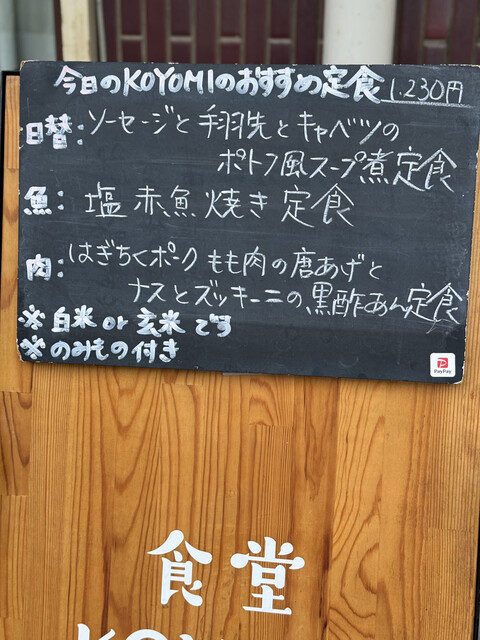 今日のKOYOMIのおすすめ定食 1.230円
日替:ソーセージと手羽先とキャベツの
ポトフ風スープ煮定食
魚:塩赤魚焼き定食
肉:はぎちくポークもも肉の唐あげと
ナスとズッキーニの黒酢あん定食
※白米or玄米です
※のみもの付き
PayPay
食堂